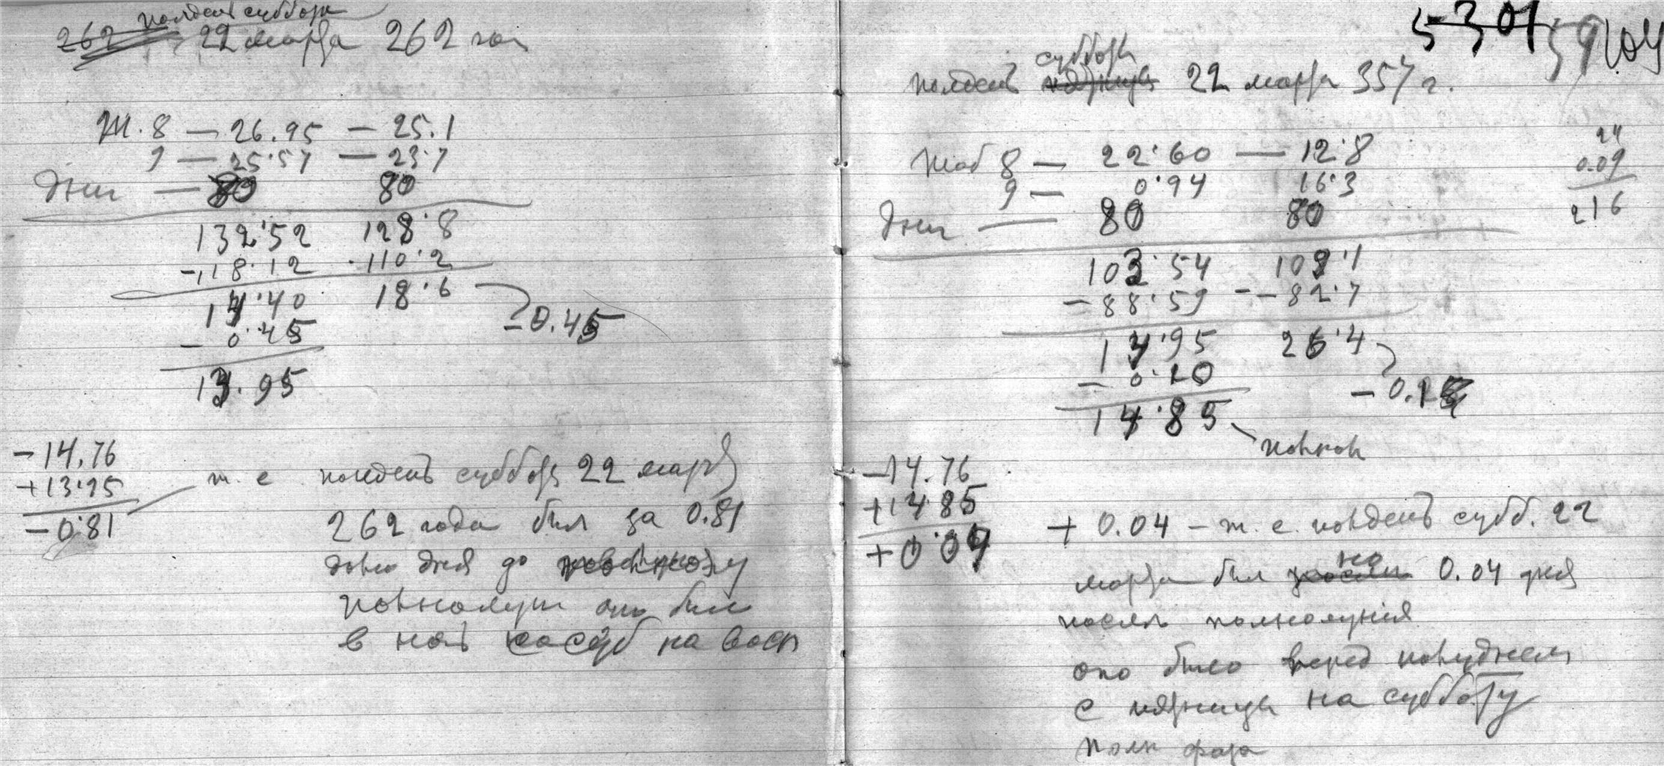 полдень суббота
262 22 марта 262 год
Т. 8 — 26.95 — 25.1
9 — 25.57 — 23.7
Дни — 80 80
132.52 128.8
-118.12 -110.2
14.40 18.6
- 0.45 -0.45
13.95
-14.76
+13.95
-0.81
т. е. полдень субботы 22 марта
262 года был за 0.81
дня до
полнолуния оно было
в ночь с суб на воск
5301 59
суббота
полдень пятница 22 марта 357 г.
Таб 8 — 22.60 — 12.8
9 — 0.94 16.3
Дни — 80 80
24
0.09
216
103.54 109.1
-88.59 -82.7
14.95 26.4
- 0.10
14.85
-14.76
+14.85
+0.09
+ 0.04 — т. е. полдень субб. 22
марта был на 0.04 дня
после полнолуния
оно было перед полуднем
с пятницы на субботу
полн фаза